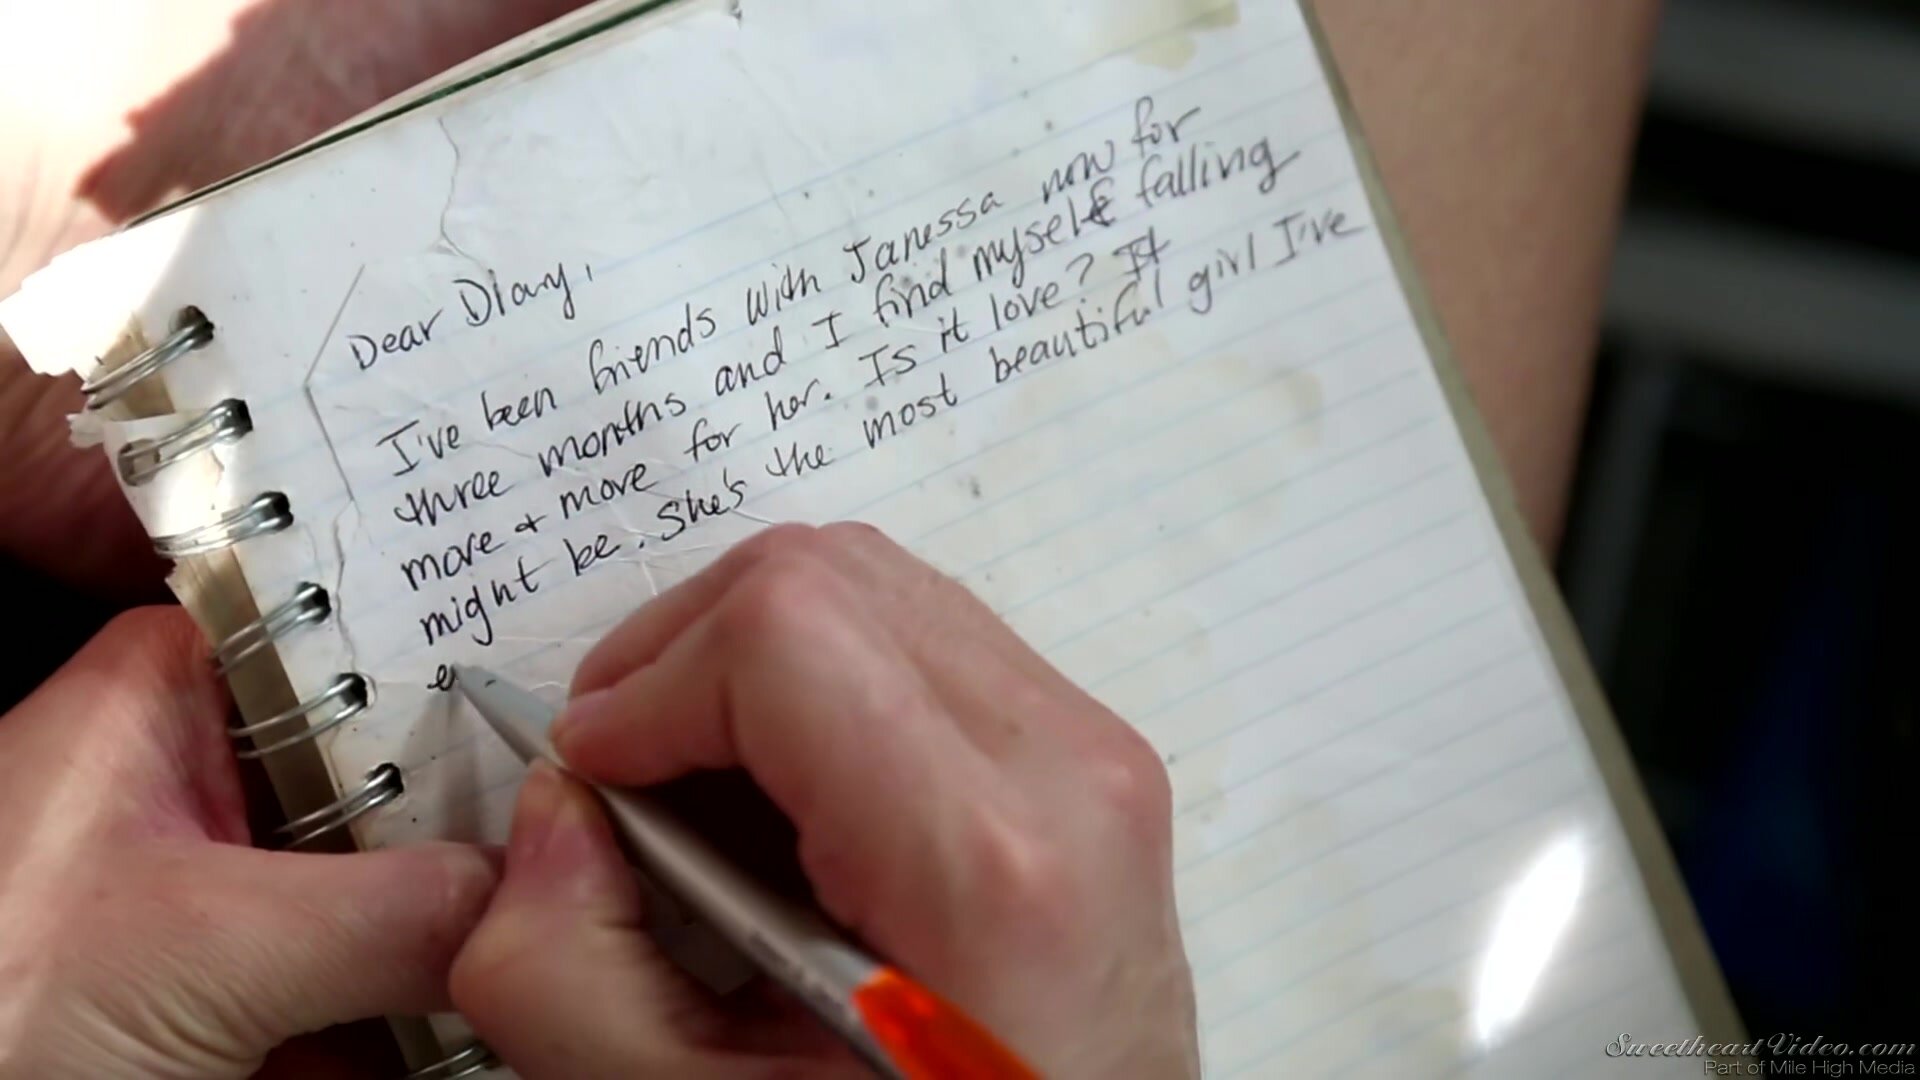 Dear Diary,
I've been friends with Janessa now for
three months and I find myself falling
more + more for her. Is it love? It
might be. She's the most beautiful girl I've
e
SweetheartVideo.com
Part of Mile High Media